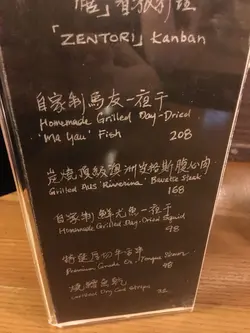 「ZENTORI」Kanban
自家制馬友一夜干
Homemade Grilled Day-Dried
'Ma Yau' Fish 208
炭燒頂級澳洲安格斯腹心肉
Grilled Aus' Riverina' Bavette Steak
168
自家制鮮尤魚一夜干
Homemade Grilled Day-Dried Squid
98
特選厚切牛舌
Premium Ox Tongue
98
燒
Grilled Dry Cod Strips